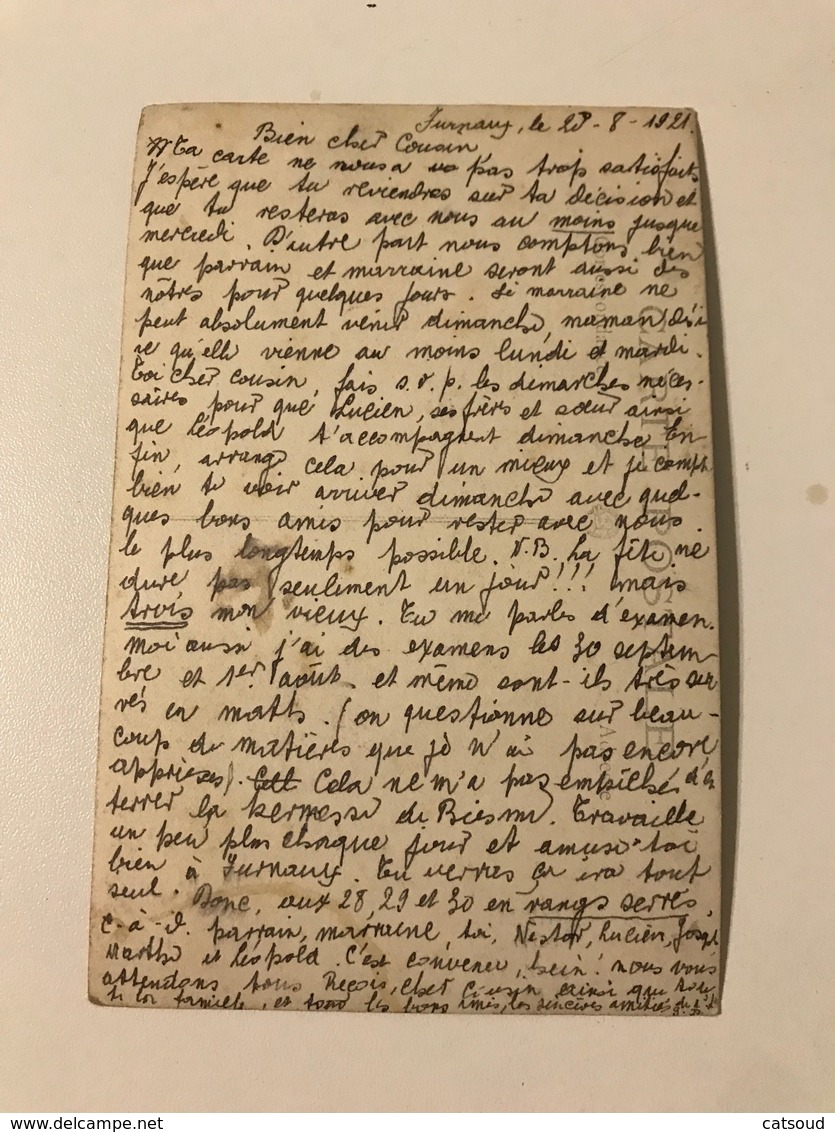 Furnaux, le 23-8-1921.
Bien cher Cousin
Ta carte ne nous a pas trop satisfaits
J'espère que tu reviendras sur ta décision et
que tu resteras avec nous au moins jusque
mercredi. D'autre part nous comptons bien
que parrain et marraine seront aussi des
nôtres pour quelques jours. Si marraine ne
peut absolument venir dimanche, maman dési
re qu'elle vienne au moins lundi et mardi.
Toi cher cousin, fais s.v.p. les démarches néces-
saires pour que Lucien, ses frères et sœur ainsi
que Léopold t'accompagnent dimanche En-
fin, arrange cela pour un mieux et je compte
bien te voir arriver dimanche avec quel-
ques bons amis pour rester avec nous
le plus longtemps possible. N.B. La fête ne
dure pas seulement un jour!!! mais
trois mon vieux. Tu me parles d'examen.
Moi aussi j'ai des examens les 30 septem-
bre et 1er août et même sont-ils très ser
rés en maths. (on questionne sur beau-
coup de matières que je n'ai pas encore
apprises). Cela ne m'a pas empêché d'en
terrer la kermesse de Biesme. Travaille
un peu plus chaque jour et amuse-toi
bien à Furnaux. Tu verras ça ira tout
seul. Donc, aux 28, 29 et 30 en rangs serrés,
c.-à-d. parrain, marraine, toi, Nestor, Lucien, Joseph
Marthe et Léopold. C'est convenu, hein! nous vous
attendons tous Reçois, cher Cousin ainsi que toute
ta famille, et tous les bons amis, les sincères amitiés de
CARTE POSTALE
delcampe.net
catsoud